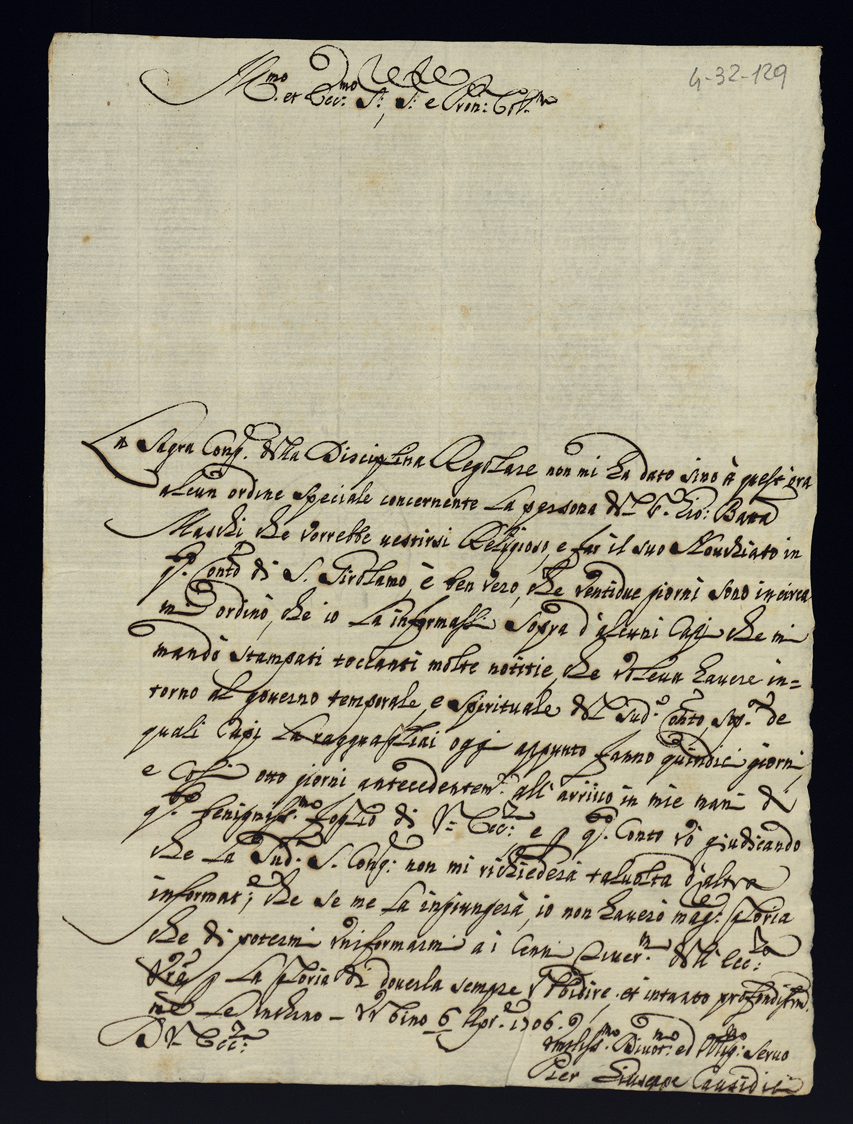 4-32-129
Ill.mo et Ecc.mo S.r, S.r e Pron: Col.mo
La Sagra Cong.e della Disciplina Regolare non mi ha dato sino à quest'ora
alcun ordine speciale concernente la persona del Gio: Batta
Maschi che vorrebbe vestirsi Religioso, e far il suo Nouitiato in
q.to Con.to di S. Girolamo, è ben vero, che ventidue giorni sono in circa
mi ordinò, che io la informassi sopra d'alcuni Capi che mi
mandò stampati toccanti molte notitie, che voleua hauere in=
torno al gouerno temporale, e spirituale del sud.o Con.to, sop.a de
quali Capi la ragguagliai oggi appunto fanno quindici giorni,
e così otto giorni antecedentem.te all'arriuo in mie mani di
q.to benigniss.mo foglio di V.a Ecc.za e p q.to Conto vò giudicando
che la Sud.a S. Cong.e non mi richiederà taluolta d'altra
informat.e; che se me la ingiungerà, io non hauerò mag.r gloria
che di potermi vniformarmi a i Cenni riuer.mi dell'Ecc.za
Vra p la gloria di douerla sempre vbbidire, et intanto profondissim.
me Le Inchino - Vrbino 6 Apr.e 1706
D V.a Ecc.za
Vmiliss.mo Diuot.mo ed Obblig.mo Seruo
Pier Giuseppe Causidici